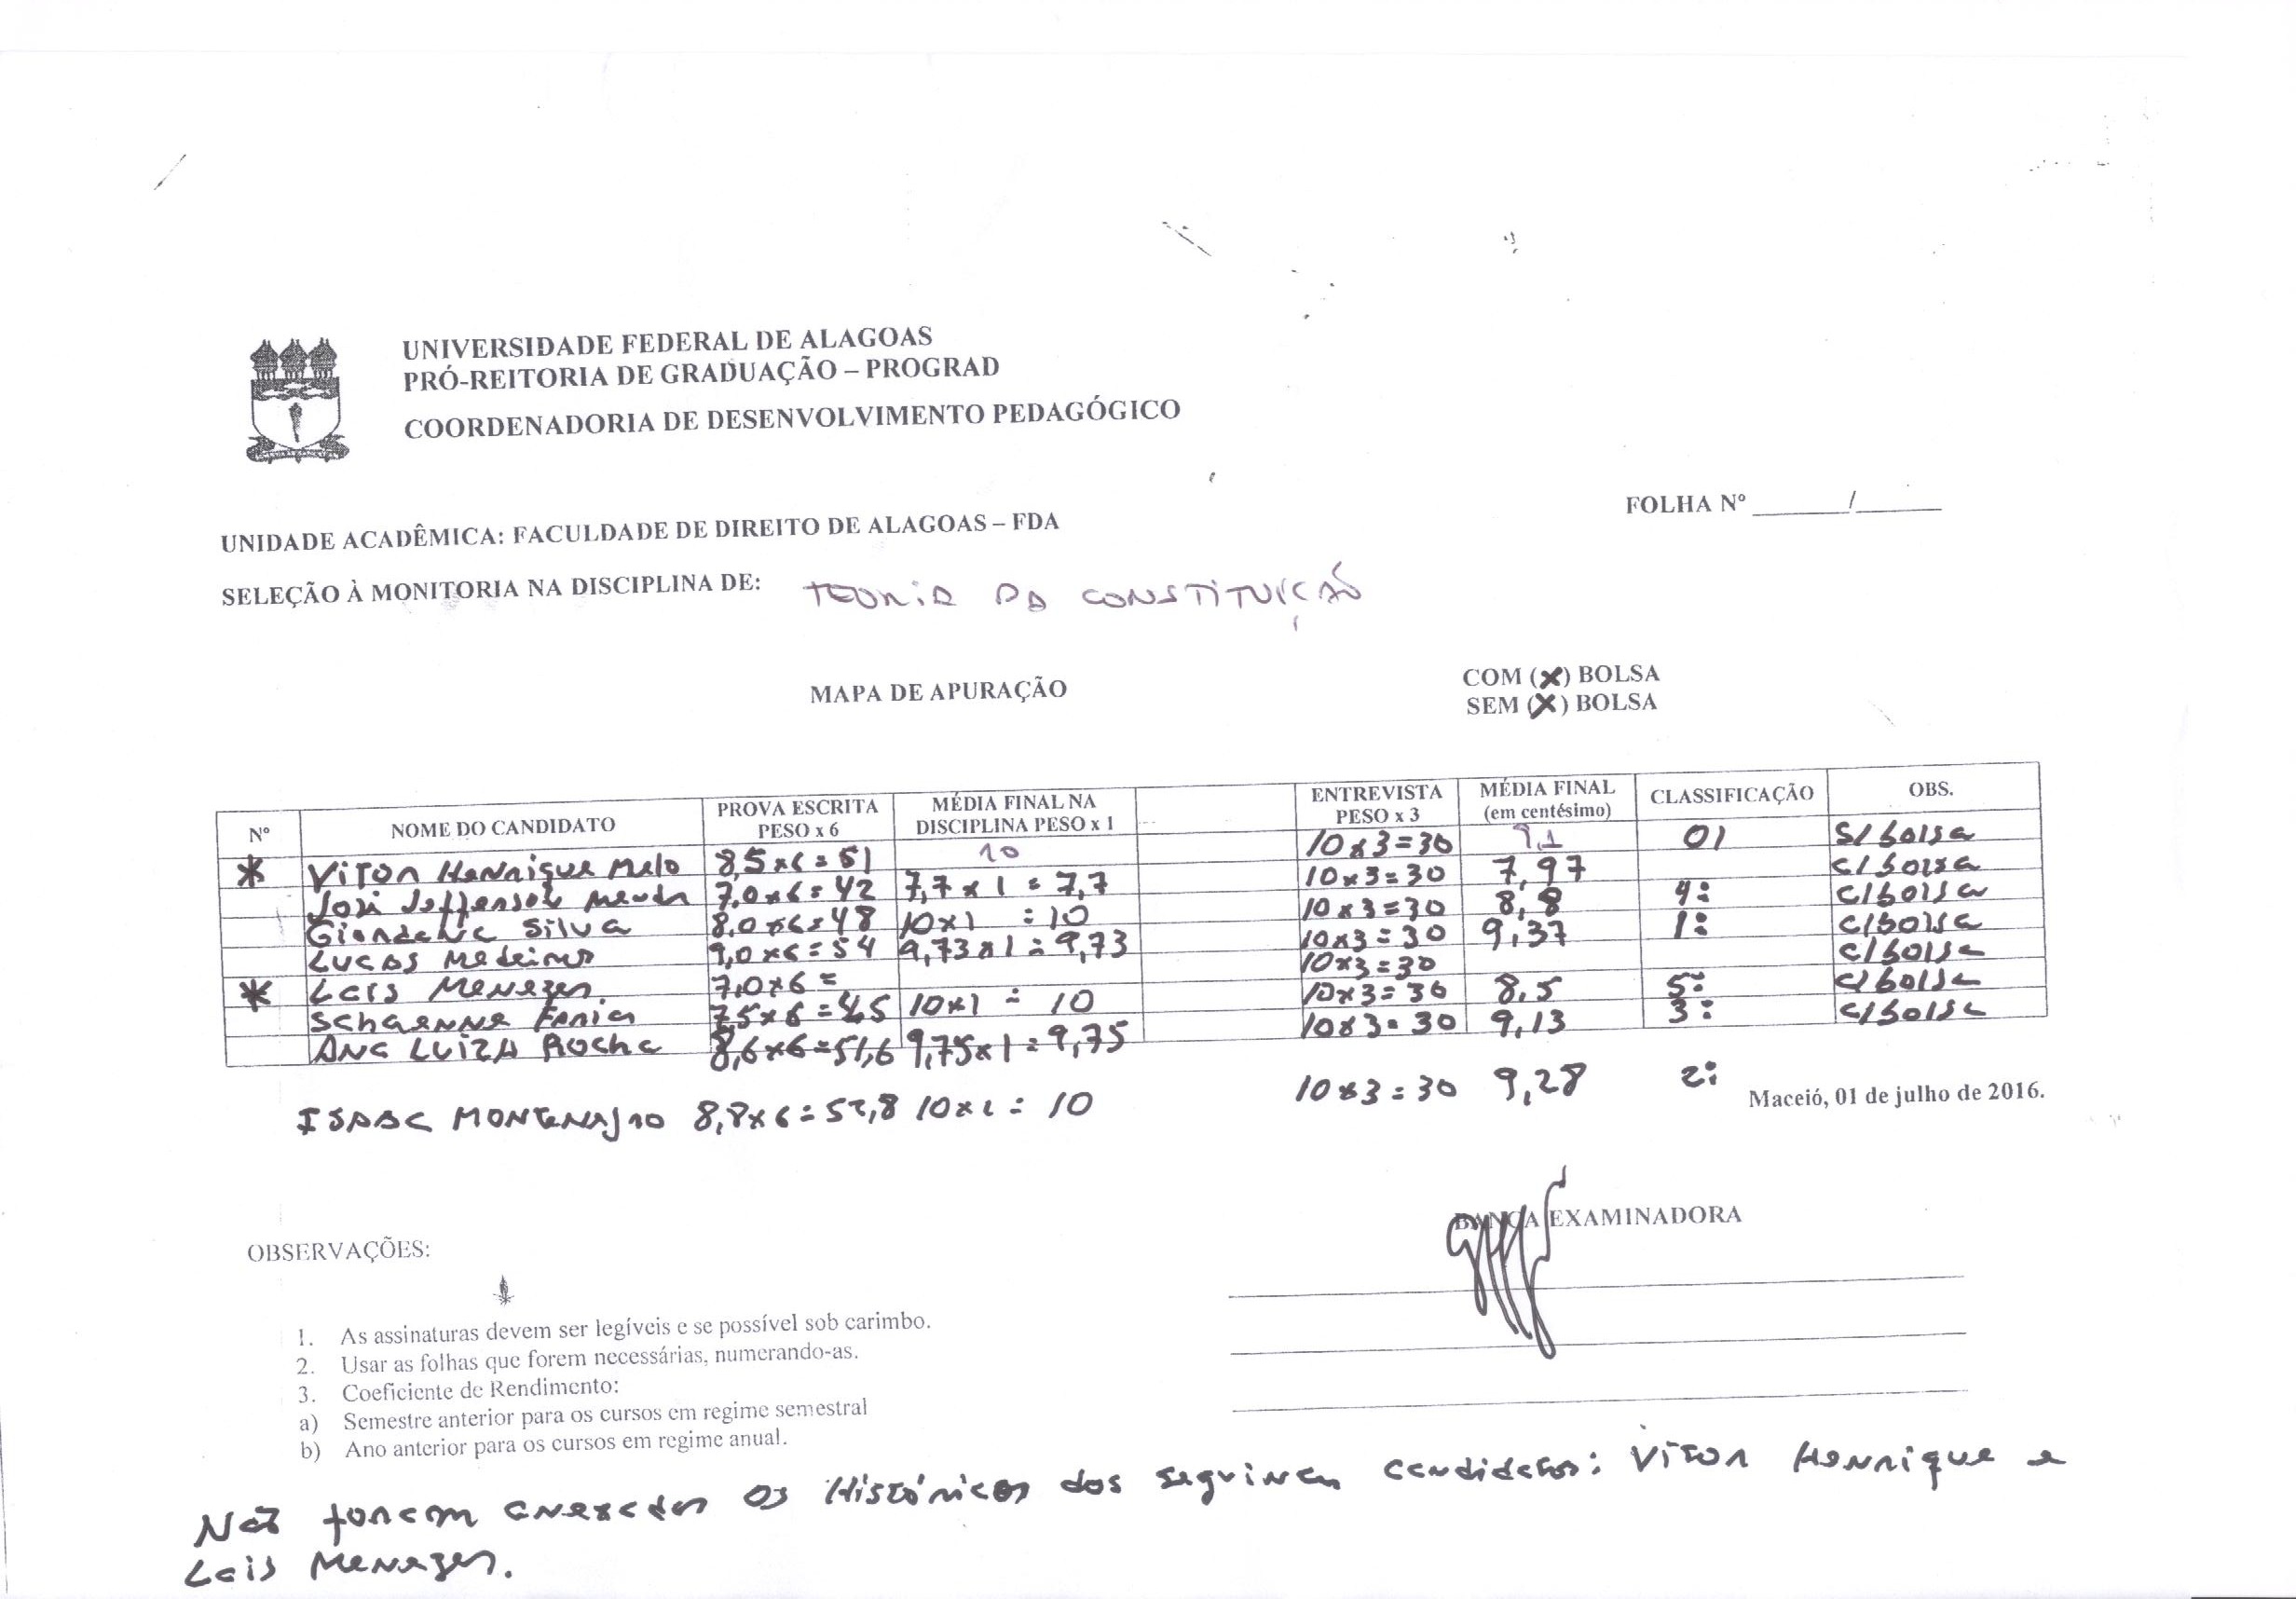 UNIVERSIDADE FEDERAL DE ALAGOAS
PRÓ-REITORIA DE GRADUAÇÃO – PROGRAD
COORDENADORIA DE DESENVOLVIMENTO PEDAGÓGICO
FOLHA Nº ______/______
UNIDADE ACADÊMICA: FACULDADE DE DIREITO DE ALAGOAS – FDA
SELEÇÃO À MONITORIA NA DISCIPLINA DE: TEORIA DA CONSTITUIÇÃO
MAPA DE APURAÇÃO
COM (X) BOLSA
SEM (X) BOLSA
Nº NOME DO CANDIDATO PROVA ESCRITA PESO x 6 MÉDIA FINAL NA DISCIPLINA PESO x 1 ENTREVISTA PESO x 3 MÉDIA FINAL (em centésimo) CLASSIFICAÇÃO OBS.
* Vitor Henrique Melo 8,5x6=51 10 10x3=30 9,1 01 S/bolsa
José Jefferson 7,0x6=42 7,7x1=7,7 10x3=30 7,97 c/bolsa
Giordana Silva 8,0x6=48 10x1=10 10x3=30 8,8 4º c/bolsa
Lucas Medeiros 9,0x6=54 9,73x1=9,73 10x3=30 9,37 1º c/bolsa
* Lais Menezes. 7,0x6= 10x3=30 c/bolsa
Faria 7,5x6=45 10x1=10 10x3=30 8,5 5º c/bolsa
Ana Luiza Rocha 8,6x6=51,6 9,75x1=9,75 10x3=30 9,13 3º c/bolsa
Isaac Montenegro 8,8x6=52,8 10x1=10 10x3=30 9,28 2º
Maceió, 01 de julho de 2016.
BANCA EXAMINADORA
OBSERVAÇÕES:
1. As assinaturas devem ser legíveis e se possível sob carimbo.
2. Usar as folhas que forem necessárias, numerando-as.
3. Coeficiente de Rendimento:
a) Semestre anterior para os cursos em regime semestral
b) Ano anterior para os cursos em regime anual.
Não foram anexados os Históricos dos seguintes candidatos: Vitor Henrique e
Lais Menezes.